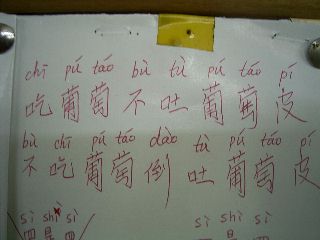 chī pú táo bù tù pú táo pí
吃葡萄不吐葡萄皮
bù chī pú táo dào tù pú táo pí
不吃葡萄倒吐葡萄皮
sì shì sì sì shí sì
四是四 四是四